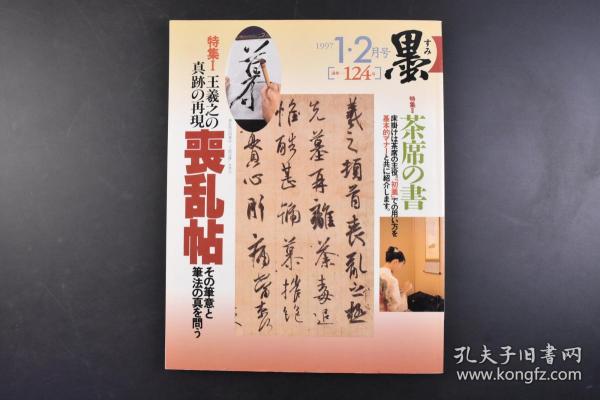 墨
すみ
1997
1・2月号
通巻124号
特集Ⅱ
茶席の書
床掛けは茶席の主役。“初釜”での用い方を
基本的マナーと共に紹介します。
特集Ⅰ
王羲之の
真跡の再現
喪乱帖
その筆意と
筆法の真を問う
羲之頓首喪乱之極
先墓再離荼毒追
惟酷甚号慕摧絶
痛貫心肝痛当奈
孔夫子旧书网
www.kongfz.com